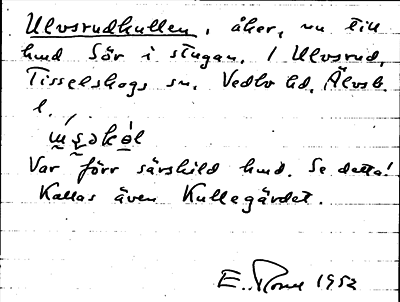 Ulvsrudkullen, åker, nu till
hmd Sör i stugan. / Ulvsrud,
Tisselskogs sn. Vedbo hd. Älvsb.
l.
Var förr särskild hmd. Se detta!
Kallas även Kullegärdet.
E. 1952